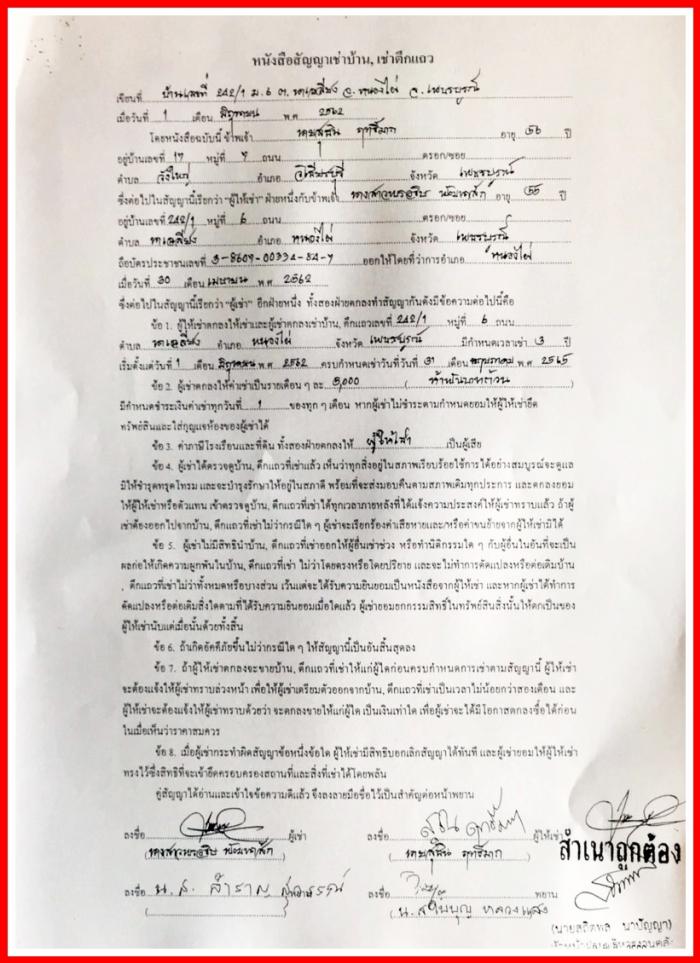 หนังสือสัญญาเช่าบ้าน, เช่าตึกแถว
เขียนที่ บ้านเลขที่ 242/1 ม.6 ต. นาเฉลียง อ. หนองไผ่ จ. เพชรบูรณ์
เมื่อวันที่ 1 เดือน มิถุนายน พ.ศ 2562
โดยหนังสือฉบับนี้ ข้าพเจ้า อายุ 56 ปี
อยู่บ้านเลขที่ 17 หมู่ที่ 7 ถนน ตรอก/ซอย
ตำบล วังใหญ่ อำเภอ วิเชียรบุรี จังหวัด เพชรบูรณ์
ซึ่งต่อไปในสัญญานี้เรียกว่า "ผู้ให้เช่า" ฝ่ายหนึ่งกับข้าพเจ้า อายุ 55 ปี
อยู่บ้านเลขที่ 242/1 หมู่ที่ 6 ถนน ตรอก/ซอย
ตำบล นาเฉลียง อำเภอ หนองไผ่ จังหวัด เพชรบูรณ์
ถือบัตรประชาชนเลขที่ 3-8609-00334-84-7 ออกให้โดยที่ว่าการอำเภอ หนองไผ่
เมื่อวันที่ 30 เดือน เมษายน พ.ศ 2562
ซึ่งต่อไปในสัญญานี้เรียกว่า "ผู้เช่า" อีกฝ่ายหนึ่ง ทั้งสองฝ่ายตกลงทำสัญญากันดังมีข้อความต่อไปนี้คือ
ข้อ 1. ผู้ให้เช่าตกลงให้เช่าและผู้เช่าตกลงเช่าบ้าน, ตึกแถวเลขที่ 242/1 หมู่ที่ 6 ถนน
ตำบล นาเฉลียง อำเภอ หนองไผ่ จังหวัด เพชรบูรณ์ มีกำหนดเวลาเช่า 3 ปี
เริ่มตั้งแต่วันที่ 1 เดือน มิถุนายน พ.ศ 2562 ครบกำหนดเช่าวันที่วันที่ 31 เดือน พฤษภาคม พ.ศ 2565
ข้อ 2. ผู้เช่าตกลงให้ค่าเช่าเป็นรายเดือน ๆ ละ 5,000 ( ห้าพันบาทถ้วน )
มีกำหนดชำระเงินค่าเช่าทุกวันที่ 1 ของทุก ๆ เดือน หากผู้เช่าไม่ชำระตามกำหนดยอมให้ผู้ให้เช่ายึด
ทรัพย์สินและใส่กุญแจห้องของผู้เช่าได้
ข้อ 3. ค่าภาษีโรงเรือนและที่ดิน ทั้งสองฝ่ายตกลงให้ ผู้ให้เช่า เป็นผู้เสีย
ข้อ 4. ผู้เช่าได้ตรวจดูบ้าน, ตึกแถวที่เช่าแล้ว เห็นว่าทุกสิ่งอยู่ในสภาพเรียบร้อยใช้การได้อย่างสมบูรณ์จะดูแล
มิให้ชำรุดทรุดโทรม และจะบำรุงรักษาให้อยู่ในสภาดี พร้อมที่จะส่งมอบคืนตามสภาพเดิมทุกประการ และตกลงยอม
ให้ผู้ให้เช่าหรือตัวแทน เข้าตรวจดูบ้าน, ตึกแถวที่เช่าได้ทุกเวลาภายหลังที่ได้แจ้งความประสงค์ให้ผู้เช่าทราบแล้ว ถ้าผู้
เช่าต้องออกไปจากบ้าน, ตึกแถวที่เช่าไม่ว่ากรณีใด ๆ ผู้เช่าจะเรียกร้องค่าเสียหายและ/หรือค่าขนย้ายจากผู้ให้เช่ามิได้
ข้อ 5. ผู้เช่าไม่มีสิทธินำบ้าน, ตึกแถวที่เช่าออกให้ผู้อื่นเช่าช่วง หรือทำนิติกรรมใด ๆ กับผู้อื่นในอันที่จะเป็น
ผลก่อให้เกิดความผูกพันในบ้าน, ตึกแถวที่เช่า ไม่ว่าโดยตรงหรือโดยปริยาย และจะไม่ทำการดัดแปลงหรือต่อเติมบ้าน
, ตึกแถวที่เช่าไม่ว่าทั้งหมดหรือบางส่วน เว้นแต่จะได้รับความยินยอมเป็นหนังสือจากผู้ให้เช่า และหากผู้เช่าได้ทำการ
ดัดแปลงหรือต่อเติมสิ่งใดตามที่ได้รับความยินยอมเมื่อใดแล้ว ผู้เช่ายอมยกกรรมสิทธิ์ในทรัพย์สินสิ่งนั้นให้ตกเป็นของ
ผู้ให้เช่านับแต่เมื่อนั้นด้วยทั้งสิ้น
ข้อ 6. ถ้าเกิดอัคคีภัยขึ้นไม่ว่ากรณีใด ๆ ให้สัญญานี้เป็นอันสิ้นสุดลง
ข้อ 7. ถ้าผู้ให้เช่าตกลงจะขายบ้าน, ตึกแถวที่เช่าให้แก่ผู้ใดก่อนครบกำหนดการเช่าตามสัญญานี้ ผู้ให้เช่า
จะต้องแจ้งให้ผู้เช่าทราบล่วงหน้า เพื่อให้ผู้เช่าเตรียมตัวออกจากบ้าน, ตึกแถวที่เช่าเป็นเวลาไม่น้อยกว่าสองเดือน และ
ผู้ให้เช่าจะต้องแจ้งให้ผู้เช่าทราบด้วยว่า จะตกลงขายให้แก่ผู้ใด เป็นเงินเท่าใด เพื่อผู้เช่าจะได้มีโอกาสตกลงซื้อได้ก่อน
ในเมื่อเห็นว่าราคาสมควร
ข้อ 8. เมื่อผู้เช่ากระทำผิดสัญญาข้อหนึ่งข้อใด ผู้ให้เช่ามีสิทธิบอกเลิกสัญญาได้ทันที และผู้เช่ายอมให้ผู้ให้เช่า
ทรงไว้ซึ่งสิทธิที่จะเข้ายึดครอบครองสถานที่และสิ่งที่เช่าได้โดยพลัน
คู่สัญญาได้อ่านและเข้าใจข้อความดีแล้ว จึงลงลายมือชื่อไว้เป็นสำคัญต่อหน้าพยาน
ลงชื่อ ผู้เช่า ลงชื่อ ผู้ให้เช่า
สำเนาถูกต้อง
ลงชื่อ น.ส. สำราญ ลงชื่อ พยาน
(นายสถิตพล นาปัญญา)